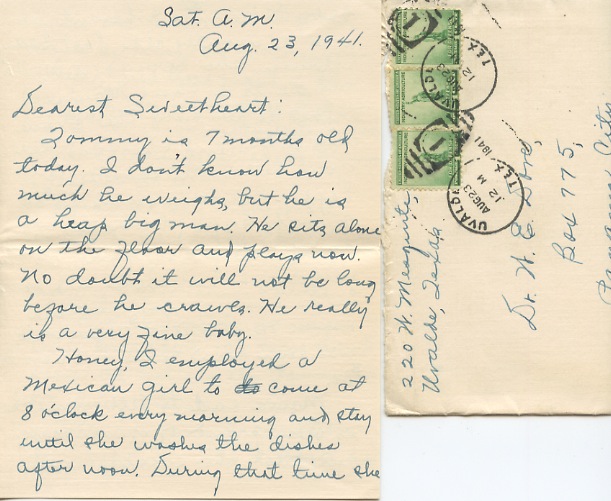 Sat. A.M.
Aug. 23, 1941.
Dearest Sweetheart:
Tommy is 7 months old
today. I don't know how
much he weighs, but he is
a heap big man. He sits alone
on the floor and plays now.
No doubt it will not be long
before he crawls. He really
is a very fine baby.
Honey, I employed a
Mexican girl to to come at
8 o'clock every morning and stay
until she washes the dishes
after noon. During that time she
220 W. Mesquite,
Uvalde, Texas
UVALDE
AUG 23
12 M
1941
TEX.
UVALDE
AUG 23
12
TEX.
Dr. W. E.
Box 775,
City